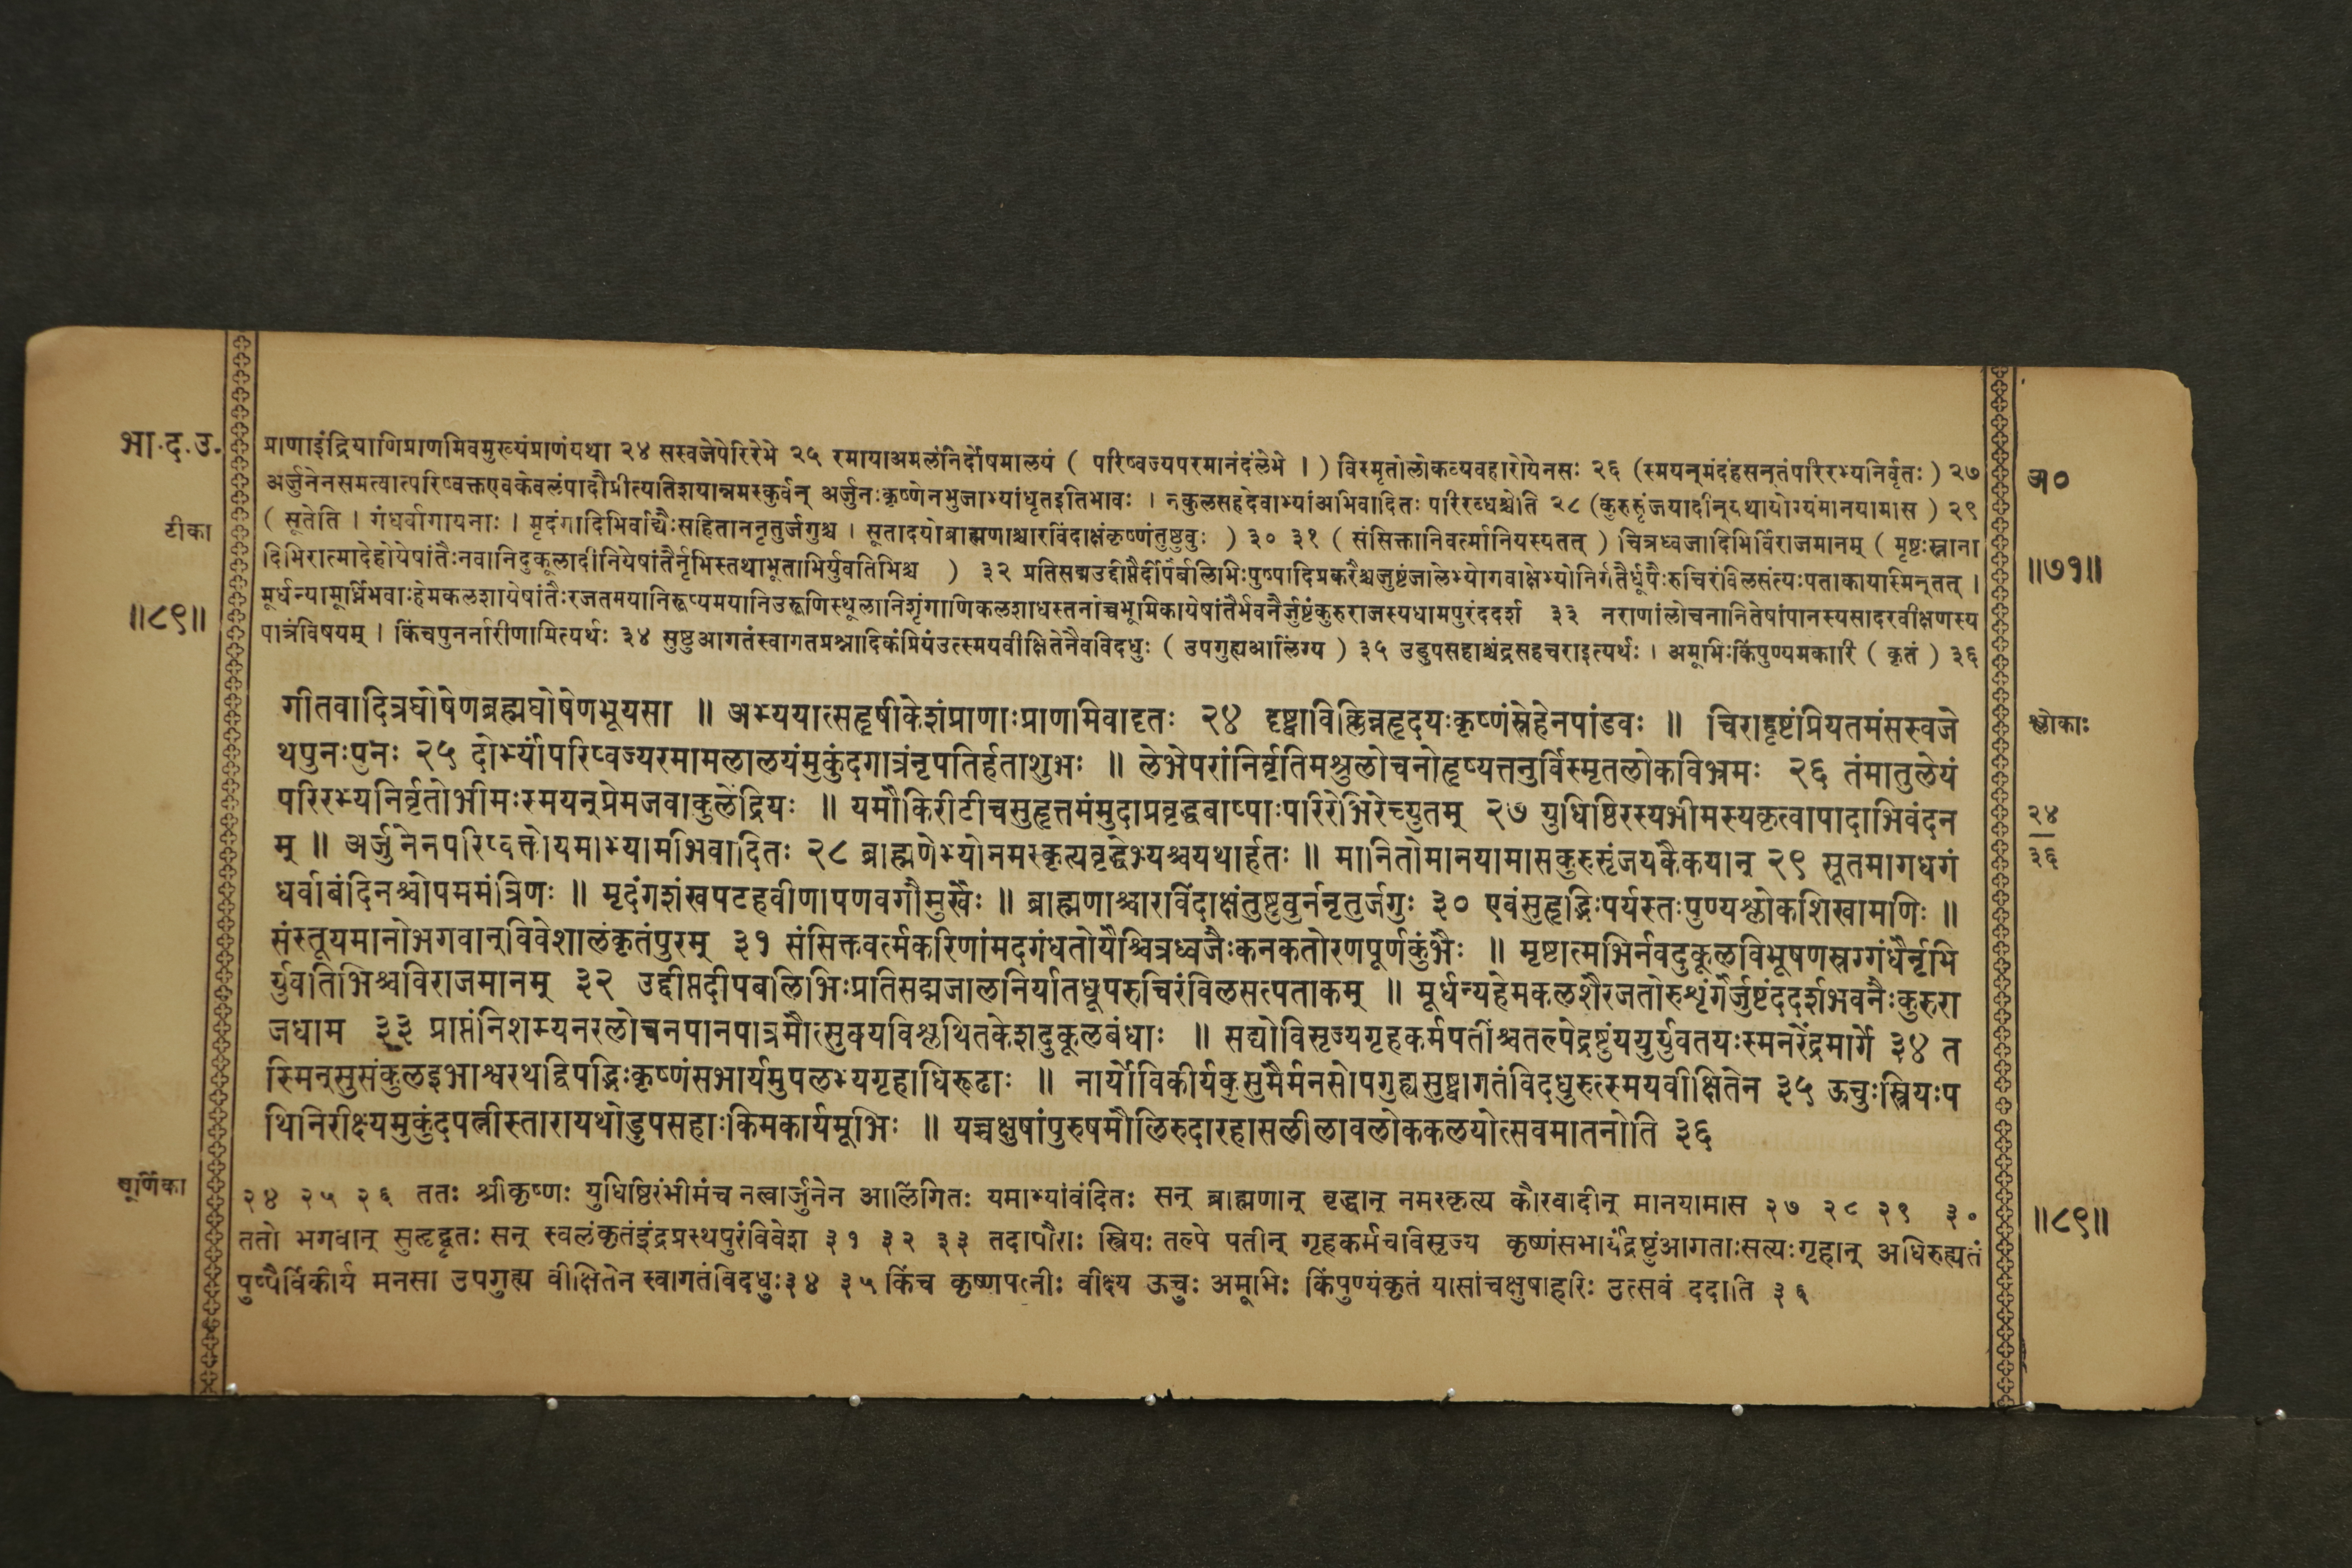 भा.द.उ.
टीका
॥८९॥
प्राणाइंद्रियाणिप्राणमिवमुख्यंप्राणंयथा २४ सस्वजेपेरिरेभे २५ रमायाअमलंनिर्दोषमालयं ( परिष्वज्यपरमानंदंलेभे । ) विस्मृतोलोकव्यवहारोयेनसः २६ (स्मयन्मंदंहसन्तंपरिरभ्यनिर्वृतः ) २७
अर्जुनेनसमत्वात्परिष्वक्तएवकेवलंपादौप्रीत्यतिशयान्नमस्कुर्वन् अर्जुनःकृष्णेनभुजाभ्यांधृतइतिभावः । नकुलसहदेवाभ्यांअभिवादितः परिरब्धश्चेति २८ (कुरुसृंजयादीन्यथायोग्यंमानयामास ) २९
( सूतेति । गंधर्वागायनाः । मृदंगादिभिर्वाद्यैःसहिताननृतुर्जगुश्च । सूतादयोब्राह्मणाश्चारविंदाक्षंकृष्णंतुष्टुवुः ) ३० ३१ ( संसिक्तानिवर्त्मानियस्यतत् ) चित्रध्वजादिभिर्विराजमानम् ( मृष्टःस्नाना
दिभिरात्मादेहोयेषांतैःनवानिदुकूलादीनियेषांतैर्नृभिस्तथाभूताभिर्युवतिभिश्च ) ३२ प्रतिसद्मउद्दीप्तैर्दीपैर्बलिभिःपुष्पादिप्रकरैश्चजुष्टंजालेभ्योगवाक्षेभ्योनिर्गतैर्धूपैःरुचिरंविलसंत्यःपताकायास्मिन्तत् ।
मूर्धन्यामूर्ध्निभवाःहेमकलशायेषांतैःरजतमयानिरूप्यमयानिउरूणिस्थूलानिशृंगाणिकलशाधस्तनांच्चभूमिकायेषांतैर्भवनैर्जुष्टंकुरुराजस्यधामपुरंददर्श ३३ नराणांलोचनानितेषांपानस्यसादरवीक्षणस्य
पात्रंविषयम् । किंचपुनर्नारीणामित्यर्थः ३४ सुष्ठुआगतंस्वागतप्रश्नादिकंप्रियंउत्स्मयवीक्षितेनैवविदधुः ( उपगुह्यआलिंग्य ) ३५ उडुपसहाश्चंद्रसहचराइत्यर्थः । अमूभिःकिंपुण्यमकारि ( कृतं ) ३६
अ०
॥७१॥
गीतवादित्रघोषेणब्रह्मघोषेणभूयसा ॥ अभ्ययात्सहृषीकेशंप्राणाःप्राणमिवादृतः २४ दृष्ट्वाविक्लिन्नहृदयःकृष्णंस्नेहेनपांडवः ॥ चिराद्दृष्टंप्रियतमंसस्वजे
थपुनःपुनः २५ दोर्भ्यांपरिष्वज्यरमामलालयंमुकुंदगात्रंनृपतिर्हताशुभः ॥ लेभेपरांनिर्वृतिमश्रुलोचनोहृष्यत्तनुर्विस्मृतलोकविभ्रमः २६ तंमातुलेयं
परिरभ्यनिर्वृतोभीमःस्मयन्प्रेमजवाकुलेंद्रियः ॥ यमौकिरीटीचसुहृत्तमंमुदाप्रवृद्धबाष्पाःपरिरेभिरेच्युतम् २७ युधिष्ठिरस्यभीमस्यकृत्वापादाभिवंदन
म् ॥ अर्जुनेनपरिष्वक्तोयमाभ्यामभिवादितः २८ ब्राह्मणेभ्योनमस्कृत्यवृद्धेभ्यश्चयथार्हतः ॥ मानितोमानयामासकुरुसृंजयकैकयान् २९ सूतमागधगं
धर्वाबंदिनश्चोपममंत्रिणः ॥ मृदंगशंखपटहवीणापणवगौमुखैः ॥ ब्राह्मणाश्चारविंदाक्षंतुष्टुवुर्ननृतुर्जगुः ३० एवंसुहृद्भिःपर्यस्तःपुण्यश्लोकशिखामणिः ॥
संस्तूयमानोभगवान्विवेशालंकृतंपुरम् ३१ संसिक्तवर्त्मकरिणांमदगंधतोयैश्चित्रध्वजैःकनकतोरणपूर्णकुंभैः ॥ मृष्टात्मभिर्नवदुकूलविभूषणस्रग्गंधैर्नृभि
र्युवतिभिश्चविराजमानम् ३२ उद्दीप्तदीपबलिभिःप्रतिसद्मजालनिर्यातधूपरुचिरंविलसत्पताकम् ॥ मूर्धन्यहेमकलशैरजतोरुशृंगैर्जुष्टंददर्शभवनैःकुरुरा
जधाम ३३ प्राप्तंनिशम्यनरलोचनपानपात्रमौत्सुक्यविश्लथितकेशदुकूलबंधाः ॥ सद्योविसृज्यगृहकर्मपतींश्चतल्पेद्रष्टुंययुर्युवतयःस्मनरेंद्रमार्गे ३४ त
स्मिन्सुसंकुलइभाश्वरथद्विपद्भिःकृष्णंसभार्यमुपलभ्यगृहाधिरूढाः ॥ नार्योविकीर्यकुसुमैर्मनसोपगुह्यसुष्वागतंविदधुरुत्स्मयवीक्षितेन ३५ ऊचुःस्त्रियःप
थिनिरीक्ष्यमुकुंदपत्नीस्तारायथोडुपसहाःकिमकार्यमूभिः ॥ यच्चक्षुषांपुरुषमौलिरुदारहासलीलावलोककलयोत्सवमातनोति ३६
श्लोकाः
२४
३६
चूर्णिका
२४ २५ २६ ततः श्रीकृष्णः युधिष्ठिरंभीमंच नत्वार्जुनेन आलिंगितः यमाभ्यांवंदितः सन् ब्राह्मणान् वृद्धान् नमस्कृत्य कौरवादीन् मानयामास २७ २८ २९ ३०
ततो भगवान् सुहृद्वृतः सन् स्वलंकृतंइंद्रप्रस्थपुरंविवेश ३१ ३२ ३३ तदापौराः स्त्रियः तल्पे पतीन् गृहकर्मचविसृज्य कृष्णंसभार्यंद्रष्टुंआगताःसत्यःगृहान् अधिरुह्यतं
पुष्पैर्विकीर्य मनसा उपगुह्य वीक्षितेन स्वागतंविदधुः३४ ३५ किंच कृष्णपत्नीः वीक्ष्य ऊचुः अमूभिः किंपुण्यंकृतं यासांचक्षुषाहरिः उत्सवं ददाति ३६
॥८९॥